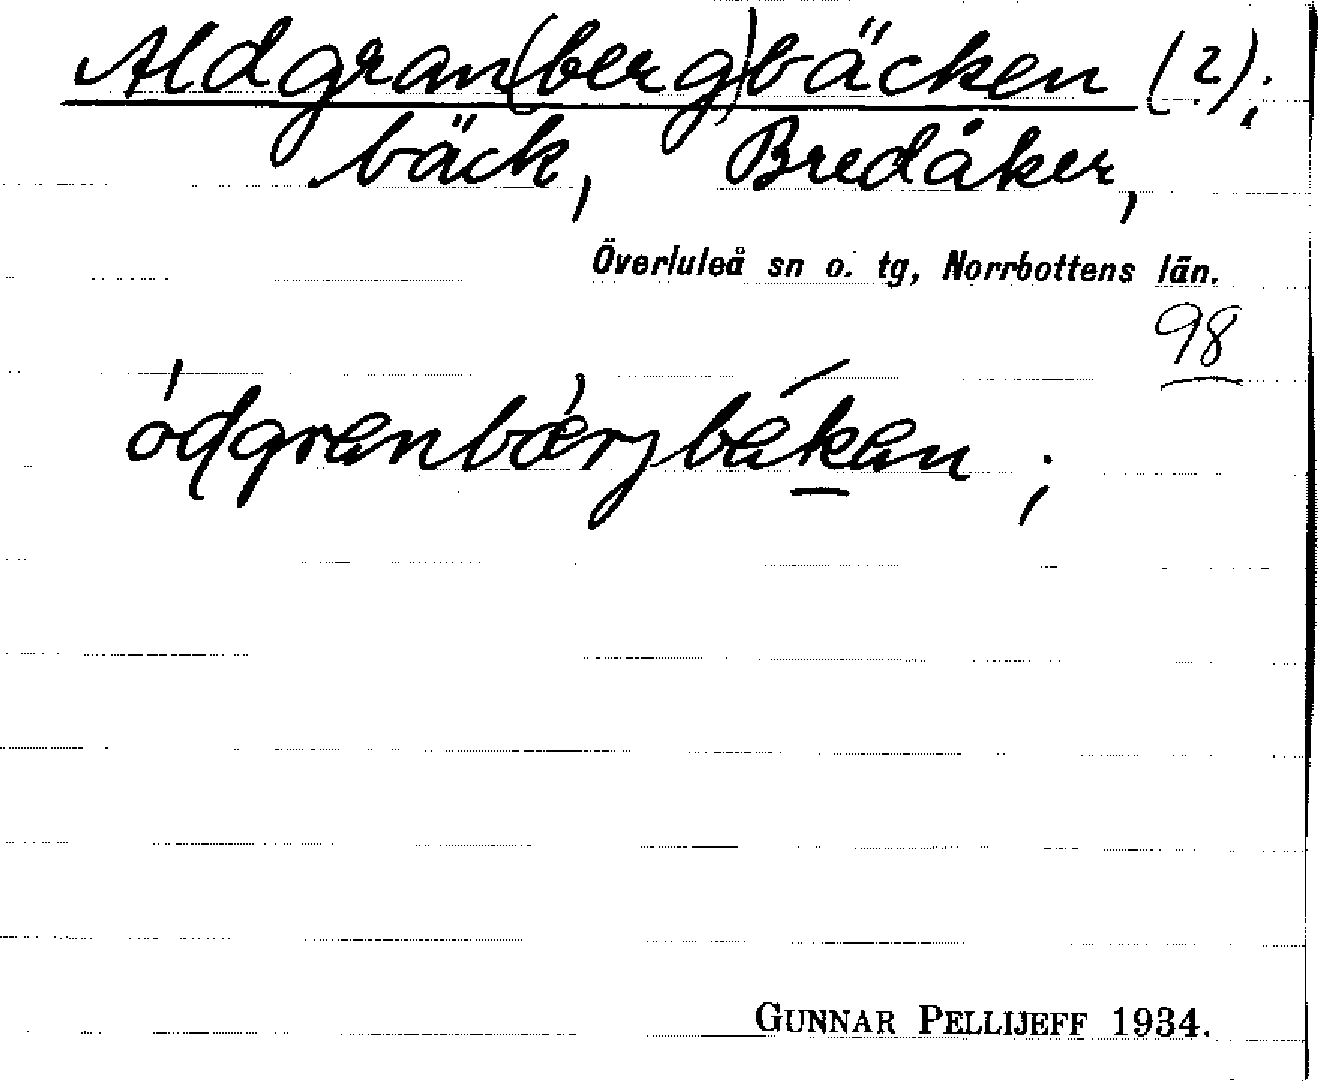 Aldgran(berg)bäcken (?);
bäck, Bredåker,
Överluleå sn o. tg, Norrbottens län.
98
ódgranbærjbäkan ;
GUNNAR PELLIJEFF 1934.